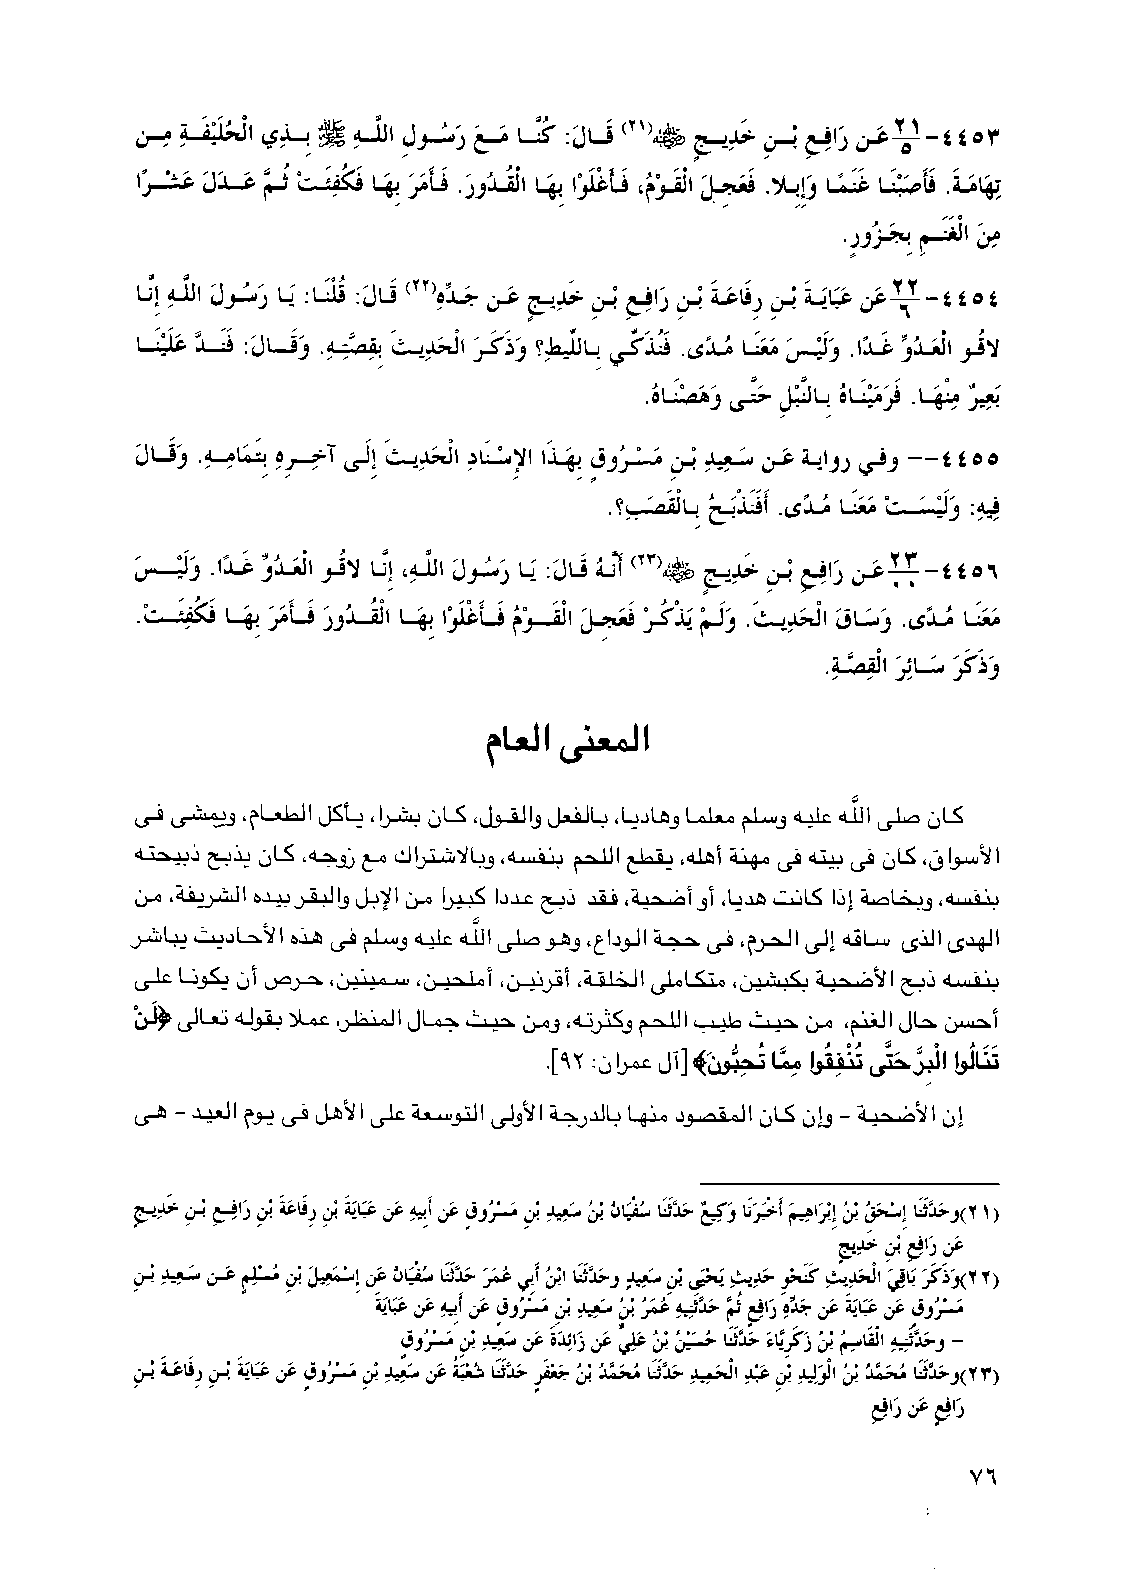 ٤٤٥٣- ٢١/٥ عَن رَافِعِ بْنِ خَدِيجٍ ﷺ(٢١) قَالَ: كُنَّا مَعَ رَسُولِ اللَّهِ ﷺ بِذِي الْحُلَيْفَةِ مِن
تِهَامَةَ. فَأَصَبْنَا غَنَمًا وَإِبِلا. فَعَجِلَ الْقَوْمُ، فَأَغْلَوْا بِهَا الْقُدُورَ. فَأَمَرَ بِهَا فَكُفِئَتْ ثُمَّ عَدَلَ عَشْرًا
مِنَ الْغَنَمِ بِجَزُورٍ.
٤٤٥٤- ٢٢/٦ عَن عَبَايَةَ بْنِ رِفَاعَةَ بْنِ رَافِعِ بْنِ خَدِيجٍ عَن جَدِّهِ(٢٢) قَالَ: قُلْنَا: يَا رَسُولَ اللَّهِ إِنَّا
لاقُو الْعَدُوِّ غَدًا. وَلَيْسَ مَعَنَا مُدًى. فَنُذَكِّي بِاللِّيطِ؟ وَذَكَرَ الْحَدِيثَ بِقِصَّتِهِ. وَقَالَ: فَنَدَّ عَلَيْنَا
بَعِيرٌ مِنْهَا. فَرَمَيْنَاهُ بِالنَّبْلِ حَتَّى وَهَصْنَاهُ.
٤٤٥٥-- وفي رواية عَن سَعِيدِ بْنِ مَسْرُوقٍ بِهَذَا الإِسْنَادِ الْحَدِيثَ إِلَى آخِرِهِ بِتَمَامِهِ. وَقَالَ
فِيهِ: وَلَيْسَتْ مَعَنَا مُدًى. أَفَنَذْبَحُ بِالْقَصَبِ؟.
٤٤٥٦- ٢٣/ عَن رَافِعِ بْنِ خَدِيجٍ ﷺ(٢٣) أَنَّهُ قَالَ: يَا رَسُولَ اللَّهِ، إِنَّا لاقُو الْعَدُوِّ غَدًا. وَلَيْسَ
مَعَنَا مُدًى. وَسَاقَ الْحَدِيثَ. وَلَمْ يَذْكُرْ فَعَجِلَ الْقَوْمُ فَأَغْلَوْا بِهَا الْقُدُورَ فَأَمَرَ بِهَا فَكُفِئَتْ.
وَذَكَرَ سَائِرَ الْقِصَّةِ.
المعنى العام
كان صلى اللَّه عليه وسلم معلما وهاديا، بالفعل والقول، كان بشرا، يأكل الطعام، ويمشى فى
الأسواق، كان فى بيته فى مهنة أهله، يقطع اللحم بنفسه، وبالاشتراك مع زوجه، كان يذبح ذبيحته
بنفسه، وبخاصة إذا كانت هديا، أو أضحية، فقد ذبح عددا كبيرا من الإبل والبقر بيده الشريفة، من
الهدى الذى ساقه إلى الحرم، فى حجة الوداع، وهو صلى اللَّه عليه وسلم فى هذه الأحاديث يباشر
بنفسه ذبح الأضحية بكبشين، متكاملى الخلقة، أقرنين، أملحين، سمينين، حرص أن يكونا على
أحسن حال الغنم، من حيث طيب اللحم وكثرته، ومن حيث جمال المنظر، عملا بقوله تعالى ﴿لَنْ
تَنَالُوا الْبِرَّ حَتَّى تُنْفِقُوا مِمَّا تُحِبُّونَ﴾ [آل عمران: ٩٢].
إن الأضحية - وإن كان المقصود منها بالدرجة الأولى التوسعة على الأهل فى يوم العيد - هى
(٢١)وحَدَّثَنَا إِسْحَقُ بْنُ إِبْرَاهِيمَ أَخْبَرَنَا وَكِيعٌ حَدَّثَنَا سُفْيَانُ بْنُ سَعِيدِ بْنِ مَسْرُوقٍ عَن أَبِيهِ عَن عَبَايَةَ بْنِ رِفَاعَةَ بْنِ رَافِعِ بْنِ خَدِيجٍ
عَن رَافِعِ بْنِ خَدِيجٍ
(٢٢)وَذَكَرَ بَاقِيَ الْحَدِيثِ كَنَحْوِ حَدِيثِ يَحْيَى بْنِ سَعِيدٍ وحَدَّثَنَا ابْنُ أَبِي عُمَرَ حَدَّثَنَا سُفْيَانُ عَن إِسْمَعِيلَ بْنِ مُسْلِمٍ عَن سَعِيدِ بْنِ
مَسْرُوقٍ عَن عَبَايَةَ عَن جَدِّهِ رَافِعٍ ثُمَّ حَدَّثَنِيهِ عُمَرُ بْنُ سَعِيدِ بْنِ مَسْرُوقٍ عَن أَبِيهِ عَن عَبَايَةَ
- وحَدَّثَنِيهِ الْقَاسِمُ بْنُ زَكَرِيَّاءَ حَدَّثَنَا حُسَيْنُ بْنُ عَلِيٍّ عَن زَائِدَةَ عَن سَعِيدِ بْنِ مَسْرُوقٍ
(٢٣)وحَدَّثَنَا مُحَمَّدُ بْنُ الْوَلِيدِ بْنِ عَبْدِ الْحَمِيدِ حَدَّثَنَا مُحَمَّدُ بْنُ جَعْفَرٍ حَدَّثَنَا شُعْبَةُ عَن سَعِيدِ بْنِ مَسْرُوقٍ عَن عَبَايَةَ بْنِ رِفَاعَةَ بْنِ
رَافِعٍ عَن رَافِعِ
٧٦